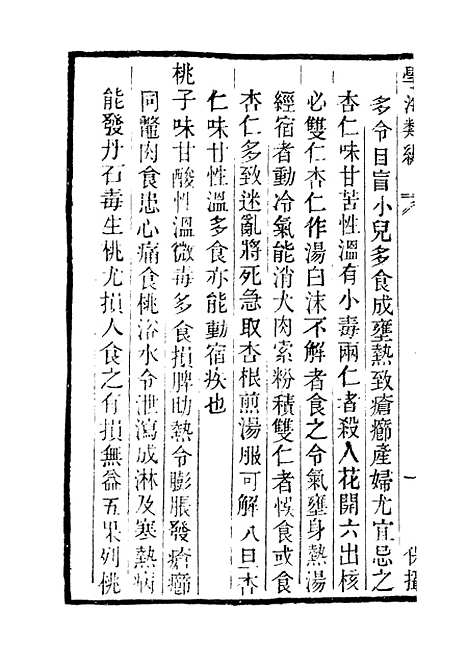 學海類編
多令目盲小兒多食成壅熱致瘡癤產婦尤宜忌之
杏仁味甘苦性溫有小毒兩仁者殺人花開六出核
必雙仁杏仁作湯白沫不解者食之令氣壅身熱湯
經宿者動冷氣能消犬肉索粉積雙仁者悞食或食
杏仁多致迷亂將死急取杏根煎湯服可解八旦杏
仁味甘性溫多食亦能動宿疾也
桃子味甘酸性溫微毒多食損脾助熱令膨脹發瘡癤
同鼈肉食患心痛食桃浴水令泄瀉成淋及寒熱病
能發丹石毒生桃尤損人食之有損無益五果列桃